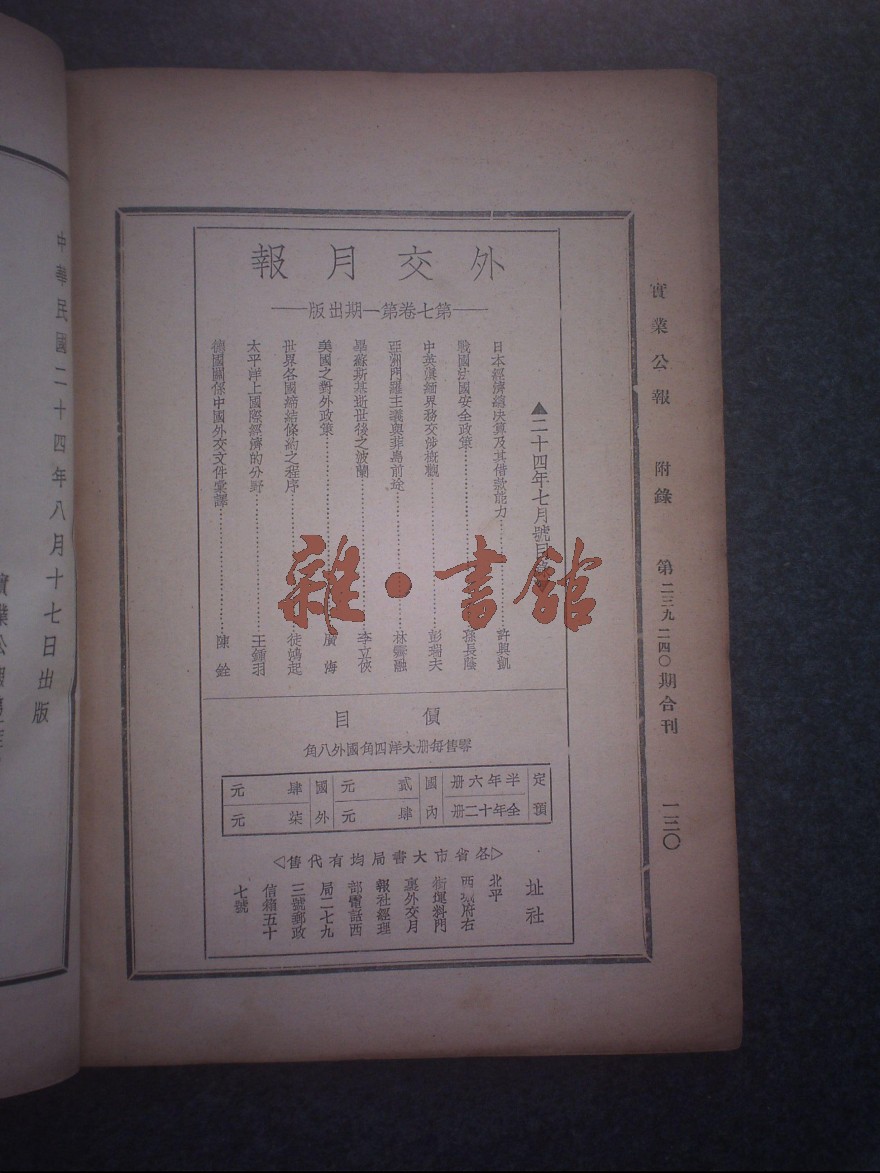 實業公報 附錄 第二三九二四〇期合刊 一三〇
外交月報
第七卷第一期出版
▲二十四年七月號目
日本經濟總決算及其借款能力 許興凱
戰國法國安全政策 孫長蔭
中英滇緬界務交涉概觀 彭瑞夫
亞洲門羅主義與菲島前途 林 融
畢蘇斯基逝世後之波蘭 李立俠
美國之對外政策 廣海
世界各國締結條約之程序 徒鴻起
太平洋上國際經濟的分野 王鍾羽
德國關係中國外交文件彙譯 陳銓
價目
零售每册大洋四角國外八角
預定
半年六册 國內 貳元 國外 肆元
全年十二册 國內 肆元 國外 柒元
◁各省市大書局均有代售▷
社址
北平
西城府右
街運料門
裏外交月
報社經理
部電話西
局二七九
三號郵政
信箱五十
七號
中華民國二十四年八月十七日出版
實業公
雜·書館